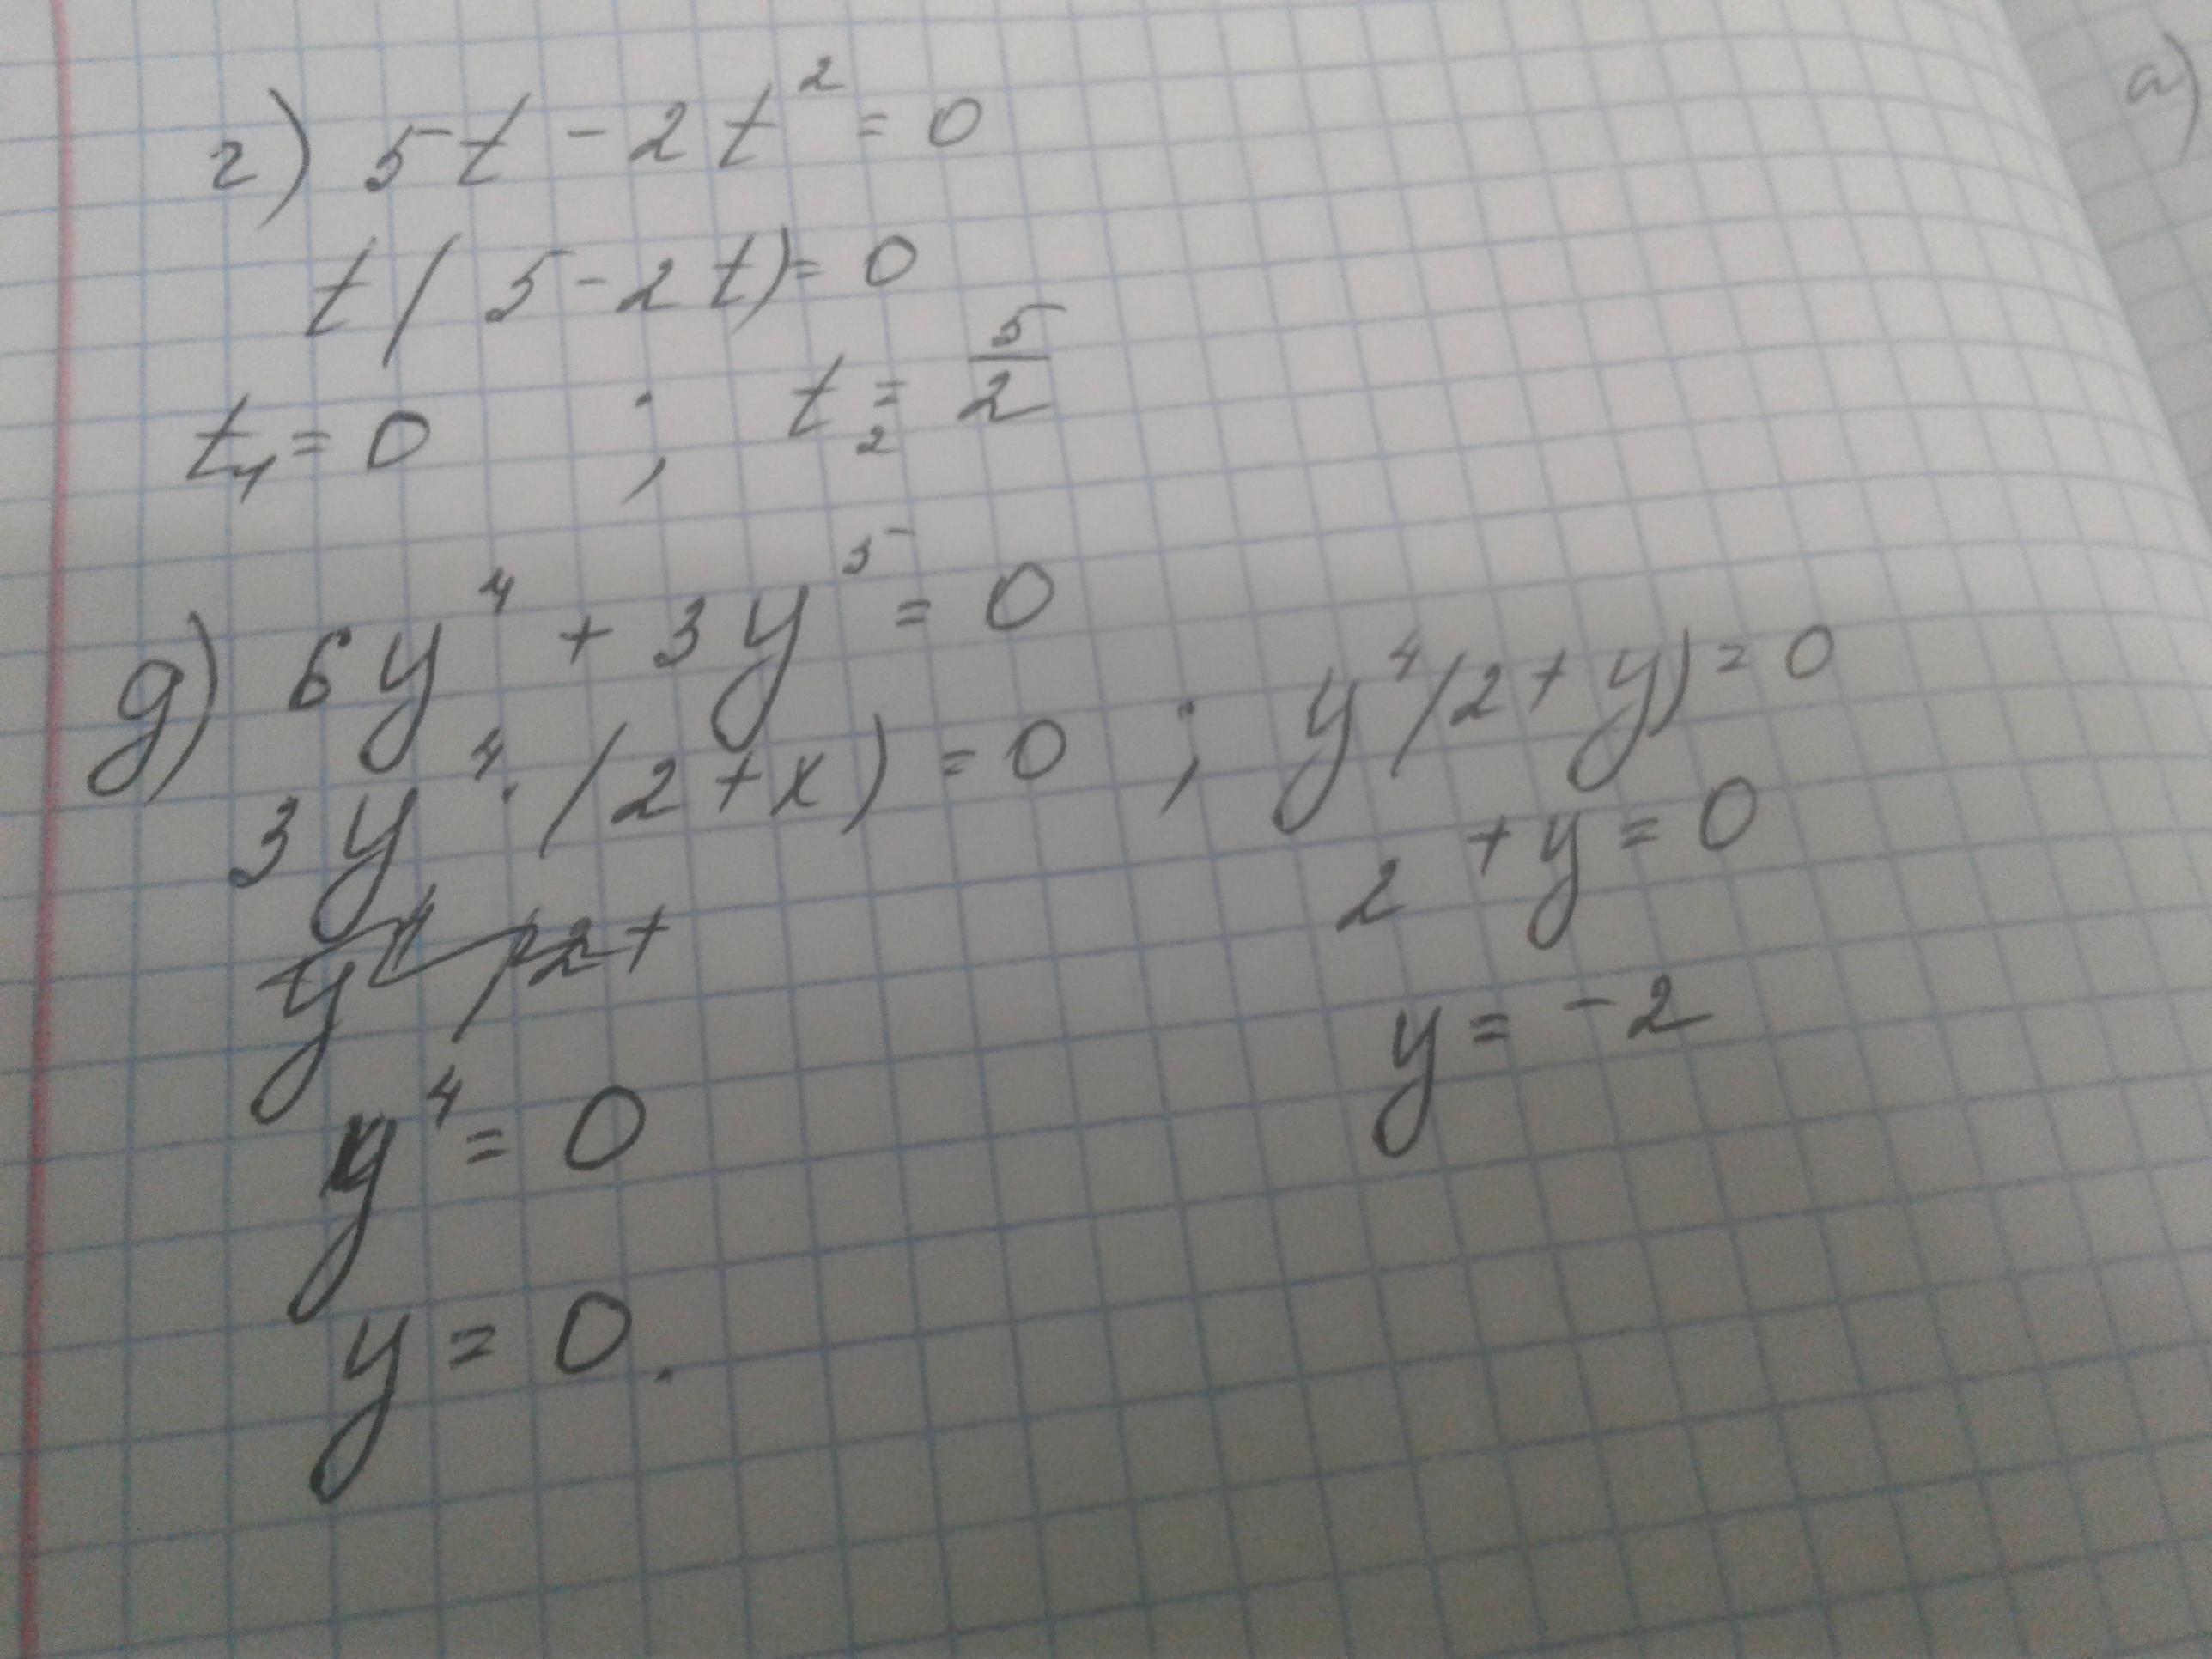 г) 5t - 2t² = 0
t(5 - 2t) = 0
t₁ = 0 ; t₂ = 5/2
д) 6y⁴ + 3y⁵ = 0
3y⁴ · (2 + x) = 0 ; y⁴(2 + y) = 0
2 + y = 0
y⁴(2+
y = -2
y⁴ = 0
y = 0.
а)